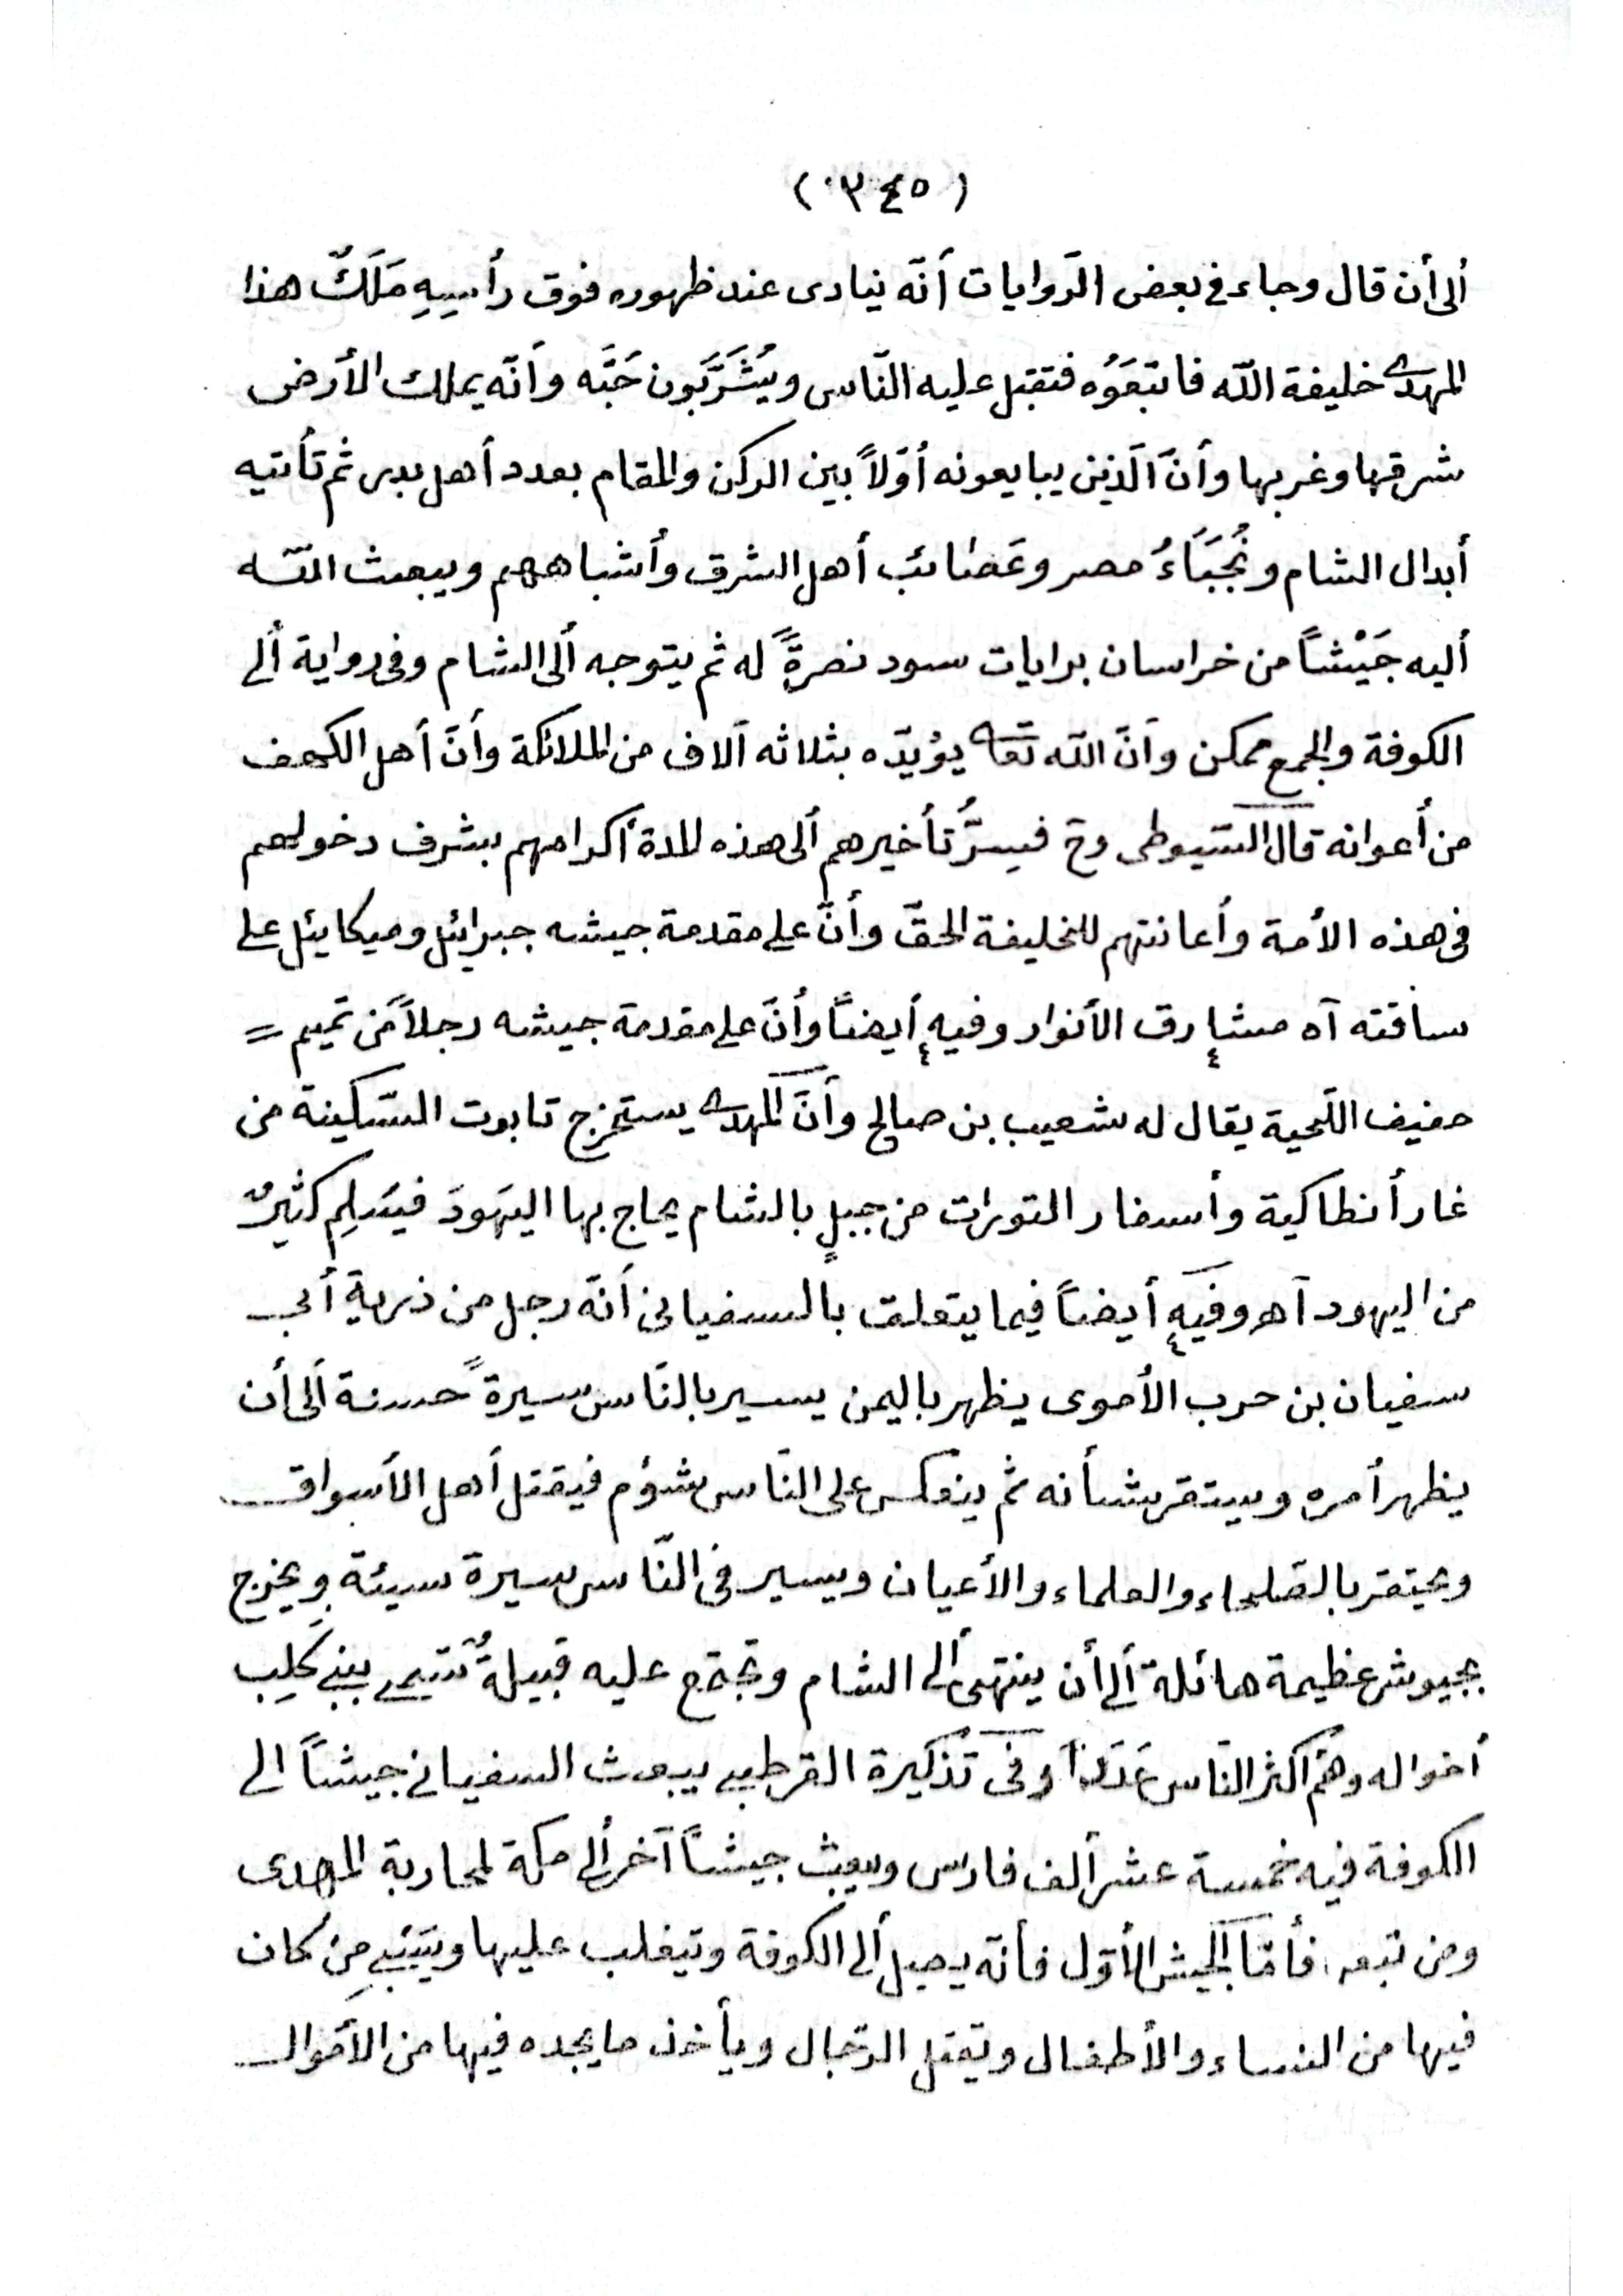 (٣٤٥)
ألى أن قال وجاء في بعض الرّوايات أنّه ينادى عند ظهوره فوق رأسِهِ مَلَكٌ هذا
المهدى خليفة اللّه فاتبعَوُه فتقبل عليه النّاس ويُشَرَّبَون حَبَّه وأنّه يملك الأرض
شرقها وغربها وأنّ الّذين يبايعونه أوّلاً بين الركن والمقام بعدد أهل بدر ثم تأتيه
أبدال الشام ونُجَبَاءُ مصر وعَصَائب أهل الشرق وأشباههم ويبعث اللّه
أليه جَيْشاً من خراسان برايات سود نصرةً له ثم يتوجه ألى الشام وفى رواية ألى
الكوفة والجمع ممكن وأنّ اللّه تعا يؤيدّه بثلاثه آلاف من الملائكة وأنّ أهل الكهف
من أعوانه قال السّيوطى وح فسِرُّ تأخيرهم ألى هذه المدة أكرامهم بشرف دخولهم
فى هذه الأمة وأعانتهم للخليفة الحقّ وأنّ على مقدمة جيشه جبرائل وميكايئل على
ساقته آه مشارق الأنوار وفيه أيضاً وأنّ على مقدمة جيشه رجلاً من تميم =
خفيف اللّحية يقال له شعيب بن صالح وأنّ المهدى يستخرج تابوت السّكينة من
غار أنطاكية وأسفار التورات من جبلٍ بالشام يحاج بها اليهَودَ فيسَلِم كثيرٌ
من اليهود آه وفيه أيضاً فيما يتعلق بالسفيانى أنّه رجل من ذرية أبى
سفيان بن حرب الأموى يظهر باليمن يسير بالنّاس سيرةً حسنة ألى أن
يظهر أمره ويستقر شأنه ثم ينعكس على النّاس بشؤم فيقتل أهل الأسواق
ويحتقر بالصّلحاء والعلماء والأعيان ويسير فى النّاس سيرة سيئة ويخرج
بجيوش عظيمة هائلة ألى أن ينتهى ألى الشام وتجتمع عليه قبيلةٌ تسّمى ببنى كَلِب
أخواله وهُم أكثر النّاس عَدَداً وفى تذكيرة القرطبى يبعث السفيانى جيشاً الى
الكوفة فيه خمسة عشر ألف فارس ويبعث جيشاً آخر ألى مكة لمحاربة المهدى
ومن تبعه فأمّا الجيش الأوّل فأنّه يصل ألى الكوفة وتيغلب عليها ويَسْبِى مِن كان
فيها من النساء والأطفال وتقتل الرّجال ويأخذ ما يجده فيها من الأَموال